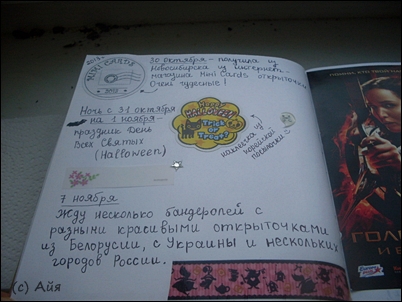 2012
MINI CARDS
2012
30 октября - получила из
Новосибирска из интернет-
магазина Mini Cards открыточки
Очень чудесные!
Ночь с 31 октября
на 1 ноября -
праздник День
Всех Святых
(Halloween)
Happy
HALLOWEEN
Trick
or
Treat!
наклейка из
корейской
посылочки
7 ноября
Жду несколько бандеролей с
разными красивыми открыточками
из Белорусии, с Украины и нескольких
городов России.
ГОЛ
И
(с) Айя